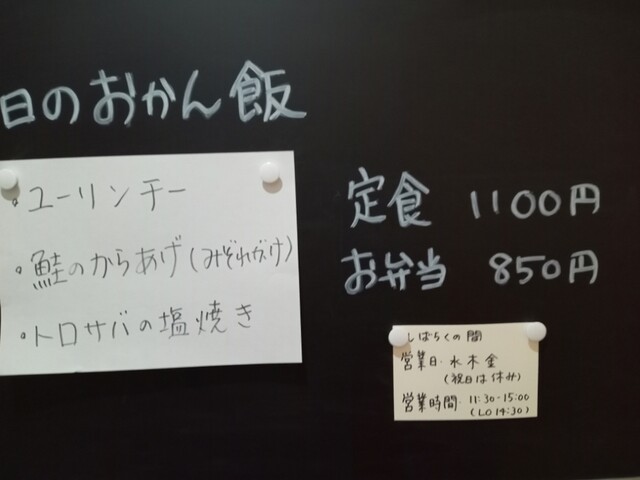 日のおかん飯
・ユーリンチー
・鮭のからあげ(みぞれがけ)
・トロサバの塩焼き
定食 1100円
お弁当 850円
しばらくの間
営業日・水木金
(祝日は休み)
営業時間・11:30-15:00
(LO14:30)